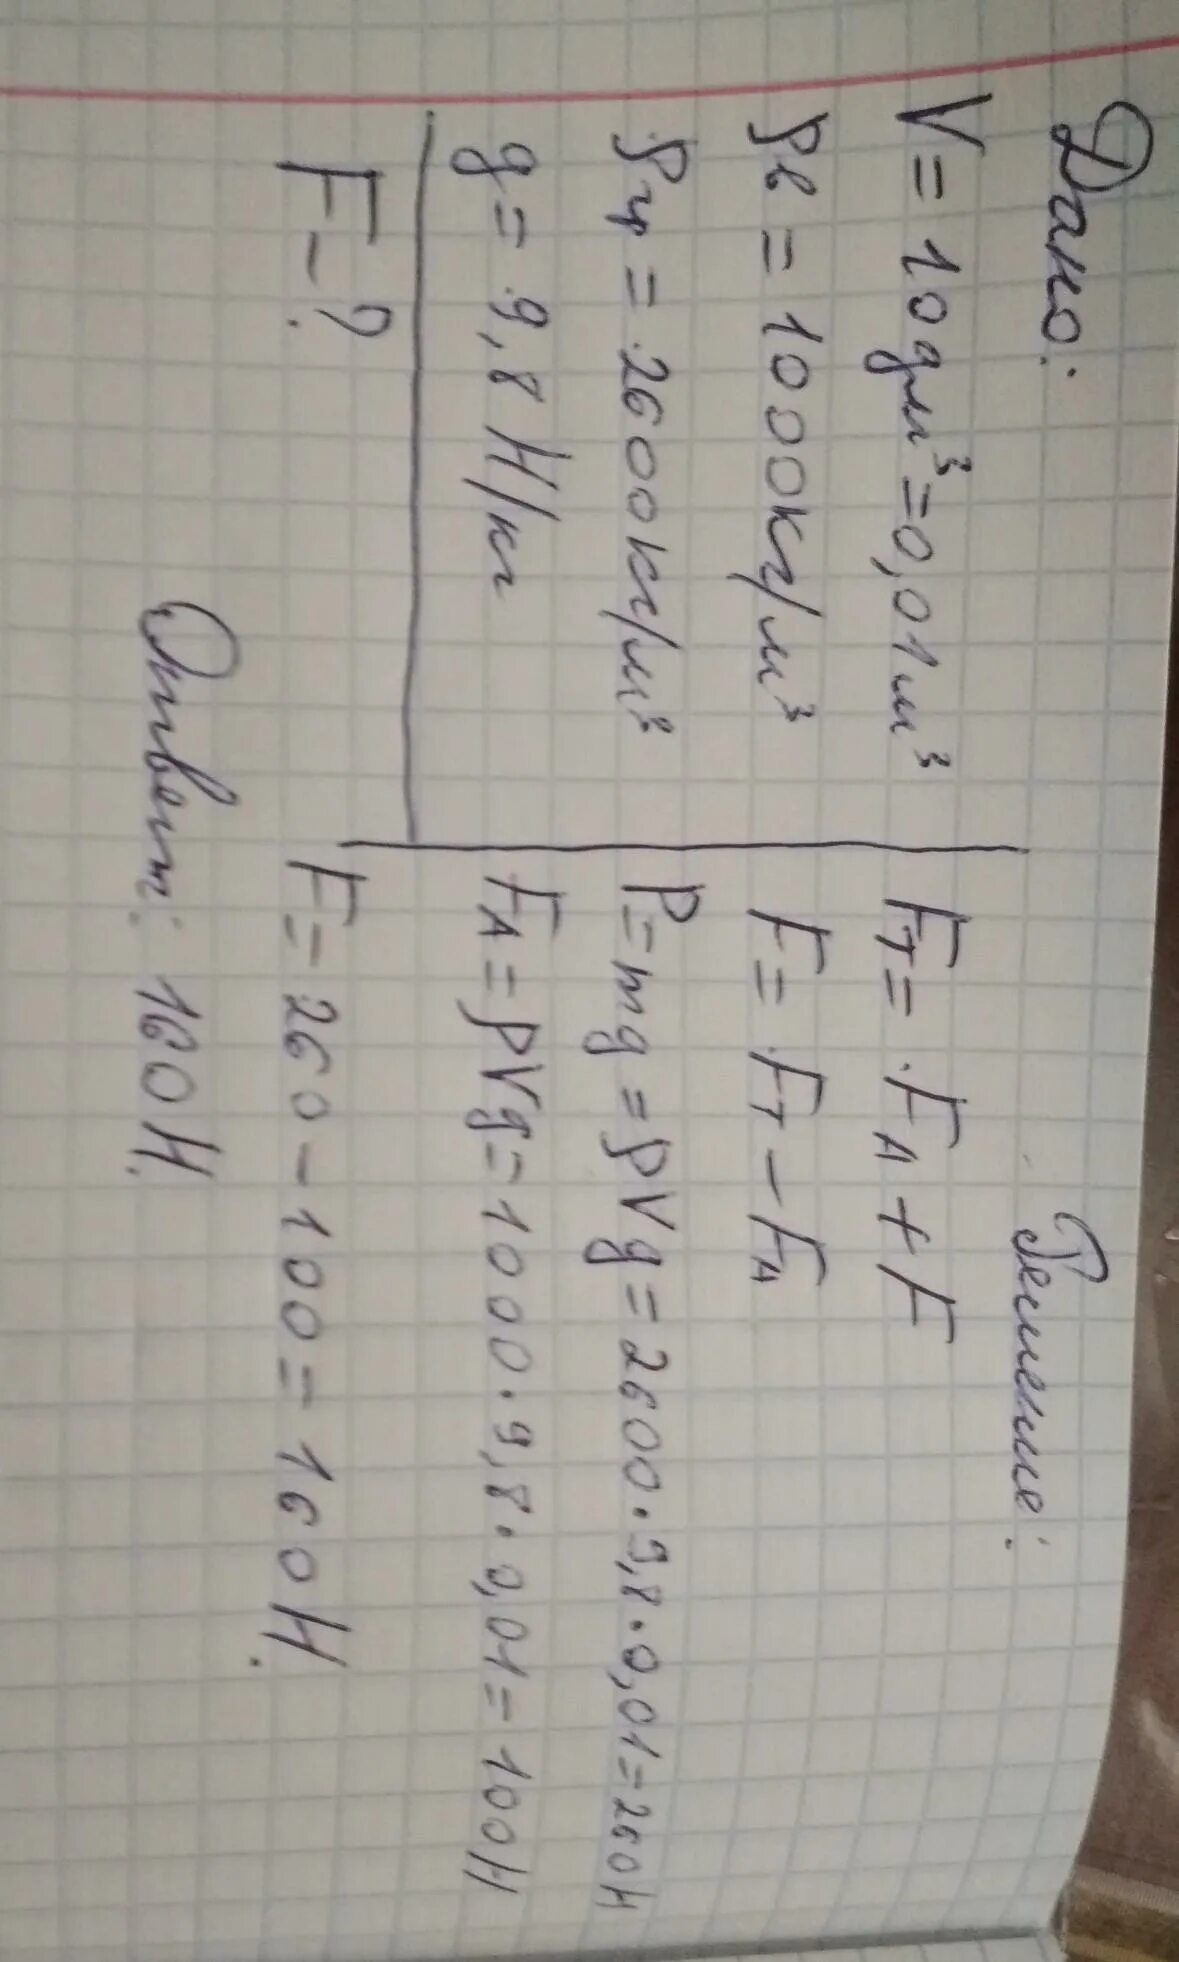 Дано:
V = 10дм³ = 0,01м³
ρв = 1000кг/м³
ρгр = 2600кг/м³
g = 9,8 Н/кг
F - ?
Решение:
Fт = FА + F
F = Fт - FА
P = mg = ρVg = 2600 · 9,8 · 0,01 = 260Н
FА = ρVg = 1000 · 9,8 · 0,01 = 100Н
F = 260 - 100 = 160Н.
Ответ: 160Н.